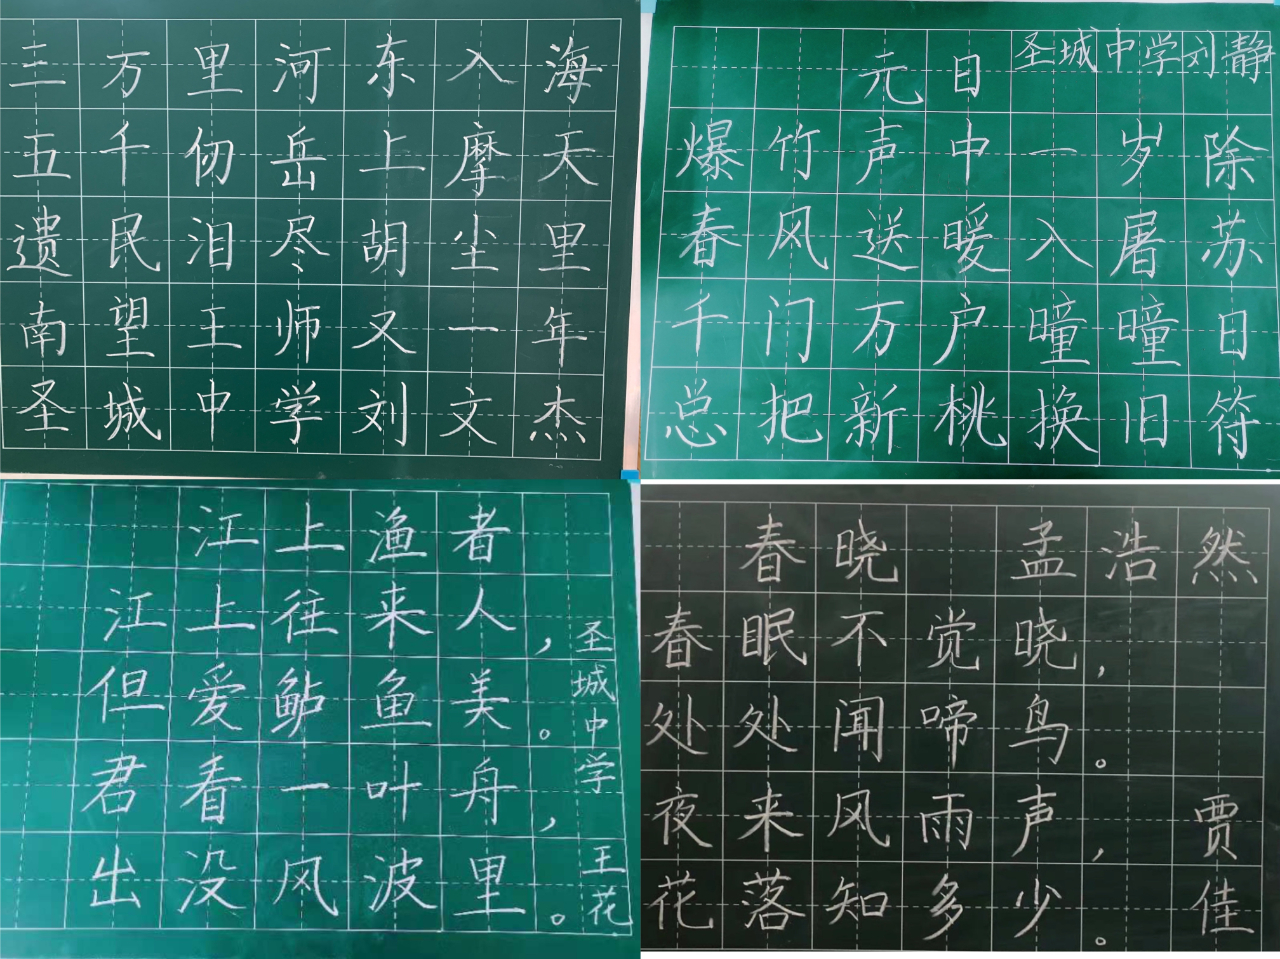 三万里河东入海
五千仞岳上摩天
遗民泪尽胡尘里
南望王师又一年
圣城中学刘文杰
元日 圣城中学刘静
爆竹声中一岁除
春风送暖入屠苏
千门万户曈曈日
总把新桃换旧符
江上渔者
江上往来人，
但爱鲈鱼美。
君看一叶舟，
出没风波里。
圣城中学 王花
春晓 孟浩然
春眠不觉晓，
处处闻啼鸟。
夜来风雨声，
花落知多少。
贾佳